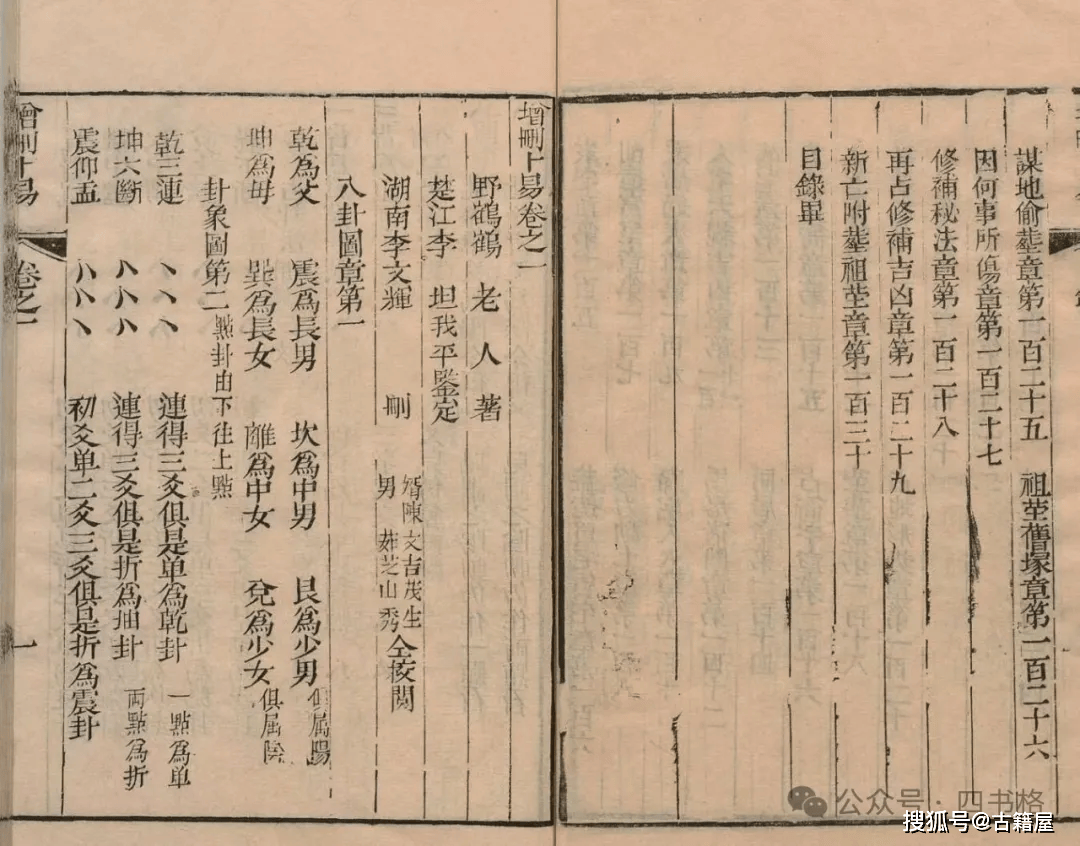 謀地偷塟章第一百二十五　祖塋舊塚章第一百二十六
因何事所傷章第一百二十七
修補秘法章第一百二十八
再占修補吉凶章第一百二十九
新亡附塟祖塋章第一百三十
目錄畢
增刪卜易卷之一
野鶴鶴　老　人　著
楚江李　坦我平鑒定
湖南李文輝　刪
婿陳文吉茂生
男　茹芝山秀
仝挍閲
八卦圖章第一
乾為父　震爲長男　坎爲中男　艮爲少男　俱属陽
坤為母　巽爲長女　離爲中女　兌爲少女　俱属陰
卦象圖第二　點卦由下往上點
乾三連　丶丶丶　連得三爻俱是单爲乾卦　一點為单
坤六斷　八八八　連得三爻俱是折爲抻卦　两點為折
震仰盂　八八丶　初爻单二爻三爻俱是折為震卦
增刪卜易　卷之一　一
公众号 · 四书格
搜狐号@古籍屋